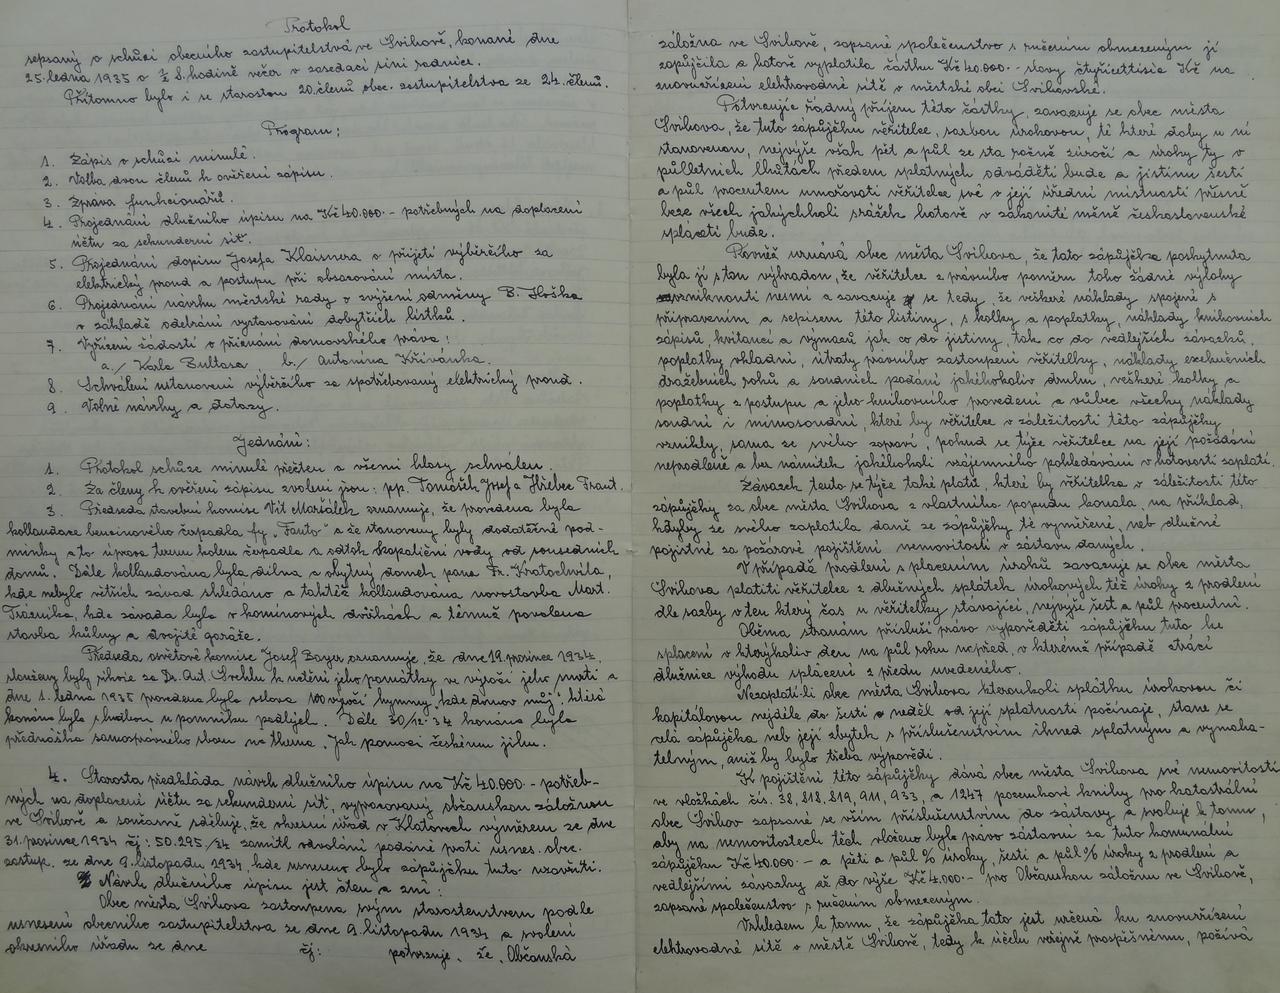 Protokol
sepsaný o schůzi obecního zastupitelstva ve Švihově, konané dne
25. ledna 1935 o ½ 8. hodině večer v zasedací síni radnice.
Přítomno bylo i se starostou 20. členů obec. zastupitelstva ze 24. členů.
Program:
1. Zápis o schůzi minulé.
2. Volba dvou členů k ověření zápisu.
3. Zpráva funkcionářů.
4. Projednání dlužního úpisu na Kč 40.000.- potřebných na doplacení
účtu za sekunderní síť.
5. Projednání dopisu Josefa Klaisnera o přijetí výběrčího za
elektrický proud a postupu při obsazování místa.
6. Projednání návrhu městské rady o zvýšení odměny B. Hoška
v základě odebrání vystavování dobytčích lístků.
7. Vyřízení žádostí o přiznání domovského práva:
a./ Karla Bultasa b./ Antonína Křivánka.
8. Schválení ustanovení výběrčího za spotřebovaný elektrický proud.
9. Volné návrhy a dotazy.
Jednání:
1. Protokol schůze minulé přečten a všemi hlasy schválen.
2. Za členy k ověření zápisu zvoleni jsou: pp. Tomášek Josef a Hřebec Frant.
3. Předseda stavební komise Vít Maršálek oznamuje, že provedena byla
kollaudace bensinového čerpadla fy „Fanto" a že stanoveny byly dodatečné pod-
mínky a to úprava terenu kolem čerpadla a odtok kapaliční vody od sousedních
domů. Dále kollaudována byla dílna a obytný domek pana Fr. Kratochvíla,
kde nebylo větších závad shledáno a taktéž kollaudována novostavba Mart.
Trázníka, kde závada byla v komínových dvířkách a témuž povolena
stavba kůlny a dvojité garáže.
Předseda osvětové komise Josef Bayer oznamuje, že dne 19. prosince 1934,
slouženy byly rekvie za Dr. Ant. Švehlu k uctění jeho památky ve výročí jeho smrti a
dne 1. ledna 1935 provedena byla oslava 100 výročí hymny „kde domov můj", která
konána byla s hudbou u pomníku padlých. Dále 30/12.34 konána byla
přednáška samosprávného sboru na thema „Jak pomoci českému jihu.
4. Starosta předkládá návrh dlužního úpisu na Kč 40.000.- potřeb-
ných na doplacení účtu za sekunderní síť, vypracovaný občanskou záložnou
ve Švihově a současně sděluje, že okresní úřad v Klatovech výměrem ze dne
31. prosince 1934 čj: 50.295/34 zamítl odvolání podané proti usnes. obec.
zastup. ze dne 9. listopadu 1934, kde usneseno bylo zápůjčku tuto uzavříti.
Návrh dlužního úpisu jest čten a zní:
Obec města Švihova zastoupena svým starostenstvem podle
usnesení obecního zastupitelstva ze dne 9. listopadu 1934 a svolení
okresního úřadu ze dne čj: potvrzuje, že, Občanská
záložna ve Švihově, zapsané společenstvo s ručením obmezeným jí
zapůjčila a hotově vyplatila částku Kč 40.000.- slovy čtyřicettisíc Kč na
znovuzřízení elektrovodné sítě v městské obci Švihovské.
Potvrzujíc řádný příjem této částky, zavazuje se obec města
Švihova, že tuto zápůjčku věřitelce, sazbou úrokovou, té které doby u ní
stanovenou, nejvýše však pět a půl ze sta ročně zúročí a úroky ty v
půlletních lhůtách předem splatných odváděti bude a jistinu šesti
a půl procentem umořovati věřitelce své v její úřední místnosti přesně
beze všech jakýchkoli srážek hotově v zákonité měně československé
splaceti bude.
Rovněž uznává obec města Švihova, že tato zápůjčka poskytnuta
byla jí s tou výhradou, že věřitelce z právního poměru toho žádné výlohy
vzniknouti nesmí a zavazuje se tedy, že veškeré náklady spojené s
připravením a sepisem této listiny, s kolky a poplatky, náklady knihovních
zápisů, kvitancí a výmazů jak co do jistiny, tak co do vedlejších závazků,
poplatky vkladní, útraty právního zastoupení věřitelky, náklady exekučních
dražebních roků a soudních podání jakéhokoliv druhu, veškeré kolky a
poplatky z postupu a jeho knihovního provedení a vůbec všechny náklady
soudní i mimosoudní, které by věřitelce v záležitosti této zápůjčky
vznikly, sama ze svého zapraví, pokud se týče věřitelce na její požádání
neprodleně a bez námitek jakéhokoli vzájemného pohledávání v hotovosti zaplatí.
Závazek tento se týče také platů, které by věřitelka v záležitosti této
zápůjčky za obec města Švihova z vlastního popudu konala, na příklad,
kdyby ze svého zaplatila daně ze zápůjčky té vyměřené, neb dlužné
pojistné za požárové pojištění nemovitostí v zástavu daných.
V případě prodlení s placením úroků zavazuje se obec města
Švihova platiti věřitelce z dlužných splátek úrokových též úroky z prodlení
dle sazby v ten který čas u věřitelky stávající, nejvýše šest a půl procentní.
Oběma stranám přísluší právo vypověděti zápůjčku tuto ke
splacení v kterýkoliv den na půl roku napřed, v kterémž případě ztrácí
dlužnice výhodu splácení z předu uvedeného.
Nezaplatí-li obec města Švihova kteroukoli splátku úrokovou či
kapitálovou nejdéle do šesti neděl od její splatnosti počínaje, stane se
celá zápůjčka neb její zbytek s příslušenstvím ihned splatným a vymaha-
telným, aniž by bylo třeba výpovědi.
K pojištění této zápůjčky dává obec města Švihova své nemovitosti
ve vložkách čís. 38, 818, 819, 911, 933, a 1247 pozemkové knihy pro katastrální
obec Švihov zapsané se vším příslušenstvím do zástavy a svoluje k tomu,
aby na nemovitostech těch vloženo bylo právo zástavní za tuto komunální
zápůjčku Kč 40.000.- a pěti a půl % úroky, šesti a půl % úroky z prodlení a
vedlejšími závazky až do výše Kč 4.000.- pro Občanskou záložnu ve Švihově,
zapsané společenstvo s ručením obmezeným.
Vzhledem k tomu, že zápůjčka tato jest určená ku znovuzřízení
elektrovodné sítě v městě Švihově, tedy k účelu veřejně prospěšnému, požívá